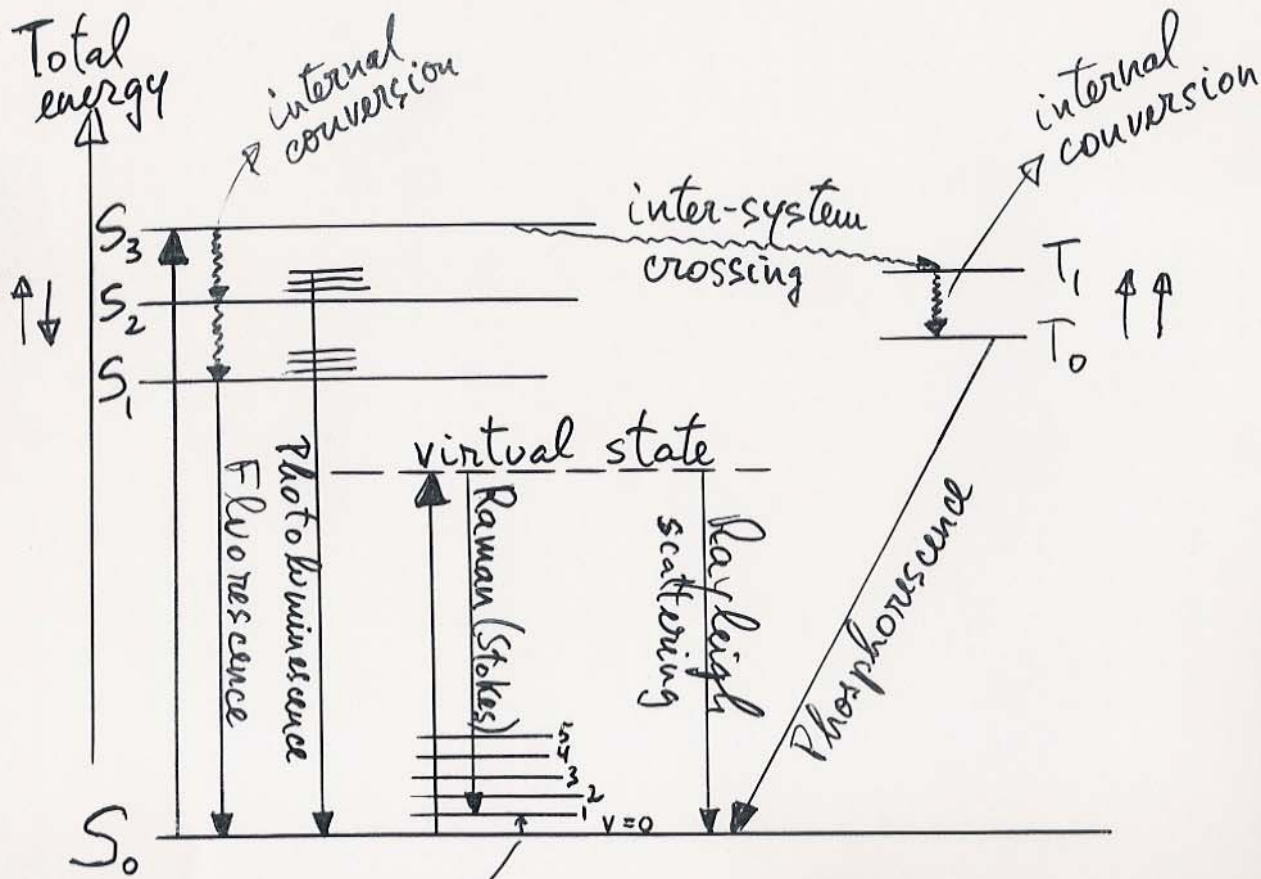 Total
energy
internal
conversion
internal
conversion
S3
inter-system
crossing
T1
S2
T0
S1
virtual state
Fluorescence
Photoluminescence
Raman (Stokes)
Rayleigh
scattering
Phosphorescence
5
4
3
2
1
v=0
S0